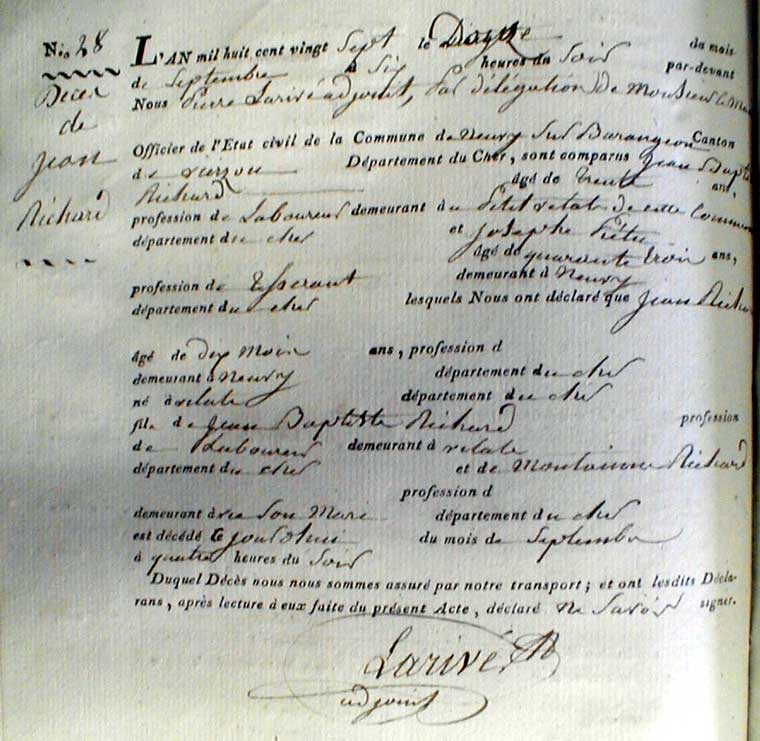 N.o 28
Décès
de
Jean
Richard
L'AN mil huit cent vingt Sept le Douze du mois
de Septembre à Six heures du Soir par-devant
Nous Pierre Larivé adjoint, Par délégation De Monsieur le
Officier de l'Etat civil de la Commune de Neuvy Sur Barangeon Canton
de vierzon Département du Cher, sont comparus Jean
Richard âgé de trente ans,
profession de Laboureur demeurant à de cette
département du cher et Josephe
âgé de quarante trois ans,
profession de Tisserant demeurant à Neuvy
département du cher lesquels Nous ont déclaré que Jean Richard
âgé de Dix Mois ans, profession d
demeurant à Neuvy département du cher
né à département du cher
fils de Jean Baptiste Richard profession
de Laboureur demeurant à
département du cher et de Richard
profession d
demeurant Son Mari département du cher
est décédé du mois de Septembre
à quatre heures du Soir
Duquel Décès nous nous sommes assuré par notre transport; et ont lesdits Décla-
rans, après lecture à eux faite du présent Acte, déclaré ne Savoir signer.
Larivé
adjoint